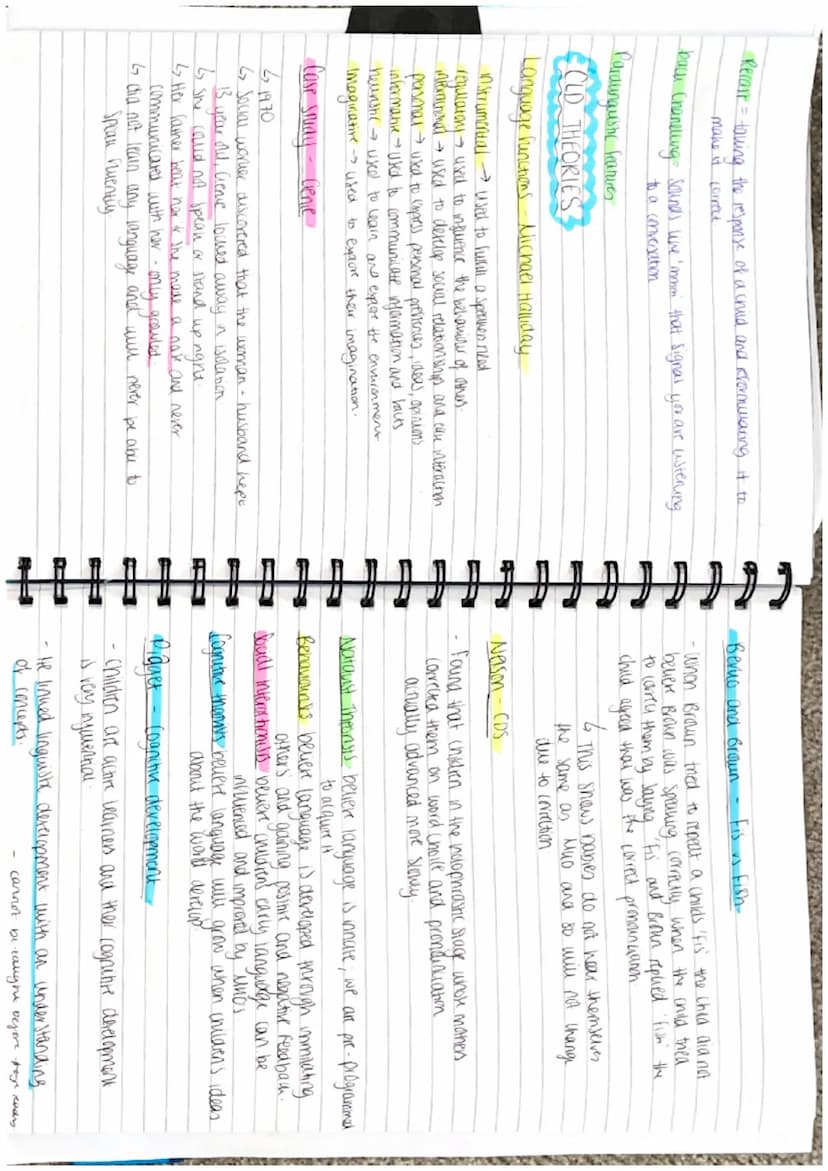 Recast = taking the response of a child and reformulating it to
make it correct
back channelling = sounds like 'mmm' that signal you are listening
to a conversation
Paralinguistic features
CLD THEORIES
Language functions - Michael Halliday
instrumental → used to fulfill a speakers need
regulatory → used to influence the behaviour of others
interactional → used to develop social relationships and ease interaction
personal → used to express personal preferences, ideas, opinions
informative → used to communicate information and
heuristic → used to learn and explore the environment
imaginative → used to explore their imagination.
Case Study - Genie
↳ 1970
↳ Social worker discovered that the woman + husband kept
13 year old Genie locked away in isolation
↳ She could not speak or stand up right.
↳ Her father beat her & she made a noise and never
communicated with her - only growled
↳ did not learn any language and will never be able to
speak fluently
Berko and Brown - Fis vs Fish
- When Brown tried to repeat a childs 'fis' the child did not
believe Brown was speaking correctly. When the child tried
to correct them by saying 'Fis' and Brown replied 'fish' the
child agreed that was the correct pronunciation.
↳ This shows babies do not hear themselves
the same as MKO and so will not change
due to correction
Nelson - CDS
- Found that children in the holophrastic stage whose mothers
corrected them on word choice and pronunciation
actually advanced more slowly
Nativist Theorists believe language is innate, we are pre-programmed
to acquire it
Behaviourists believe language is developed through immitating
others and gaining positive and negative feedback.
Social Interactionists believe childrens early language can be
influenced and improved by MKOs
Cognitive theorists believe language will grow when children's ideas
about the world develop
Piaget - Cognitive development
- Children are active learners and their cognitive development
is very influential.
- He linked linguistic development with an understanding
of concepts.
- cannot be taught before they